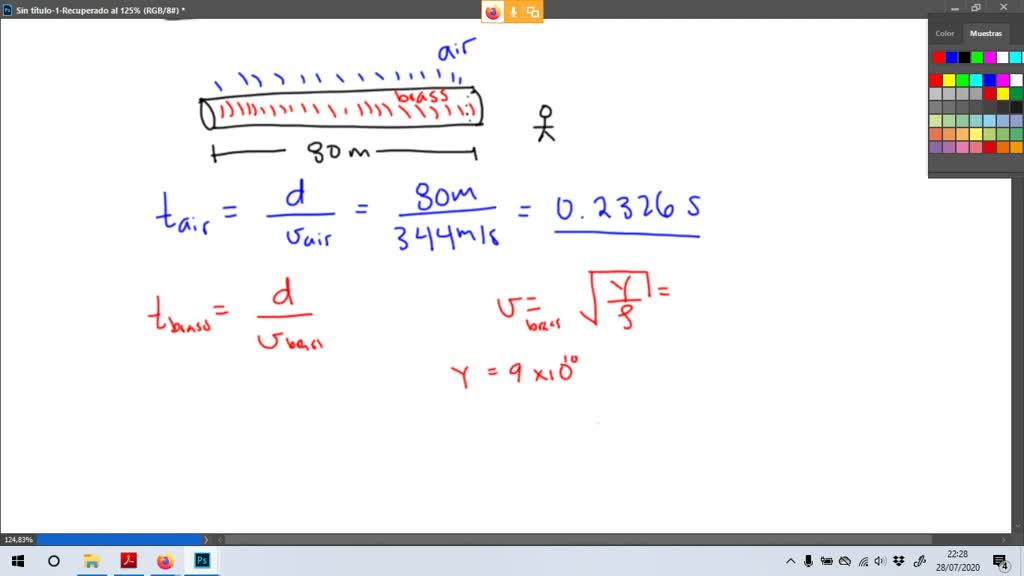 Sin título-1-Recuperado al 125% (RGB/8#) *
Color Muestras
air
brass
80m
t air = d / v air = 80m / 344m/s = 0.2326 s
t brass = d / v brass
v brass = √(Y/ρ) =
Y = 9 x10^10
124,83%
22:28
28/07/2020
4